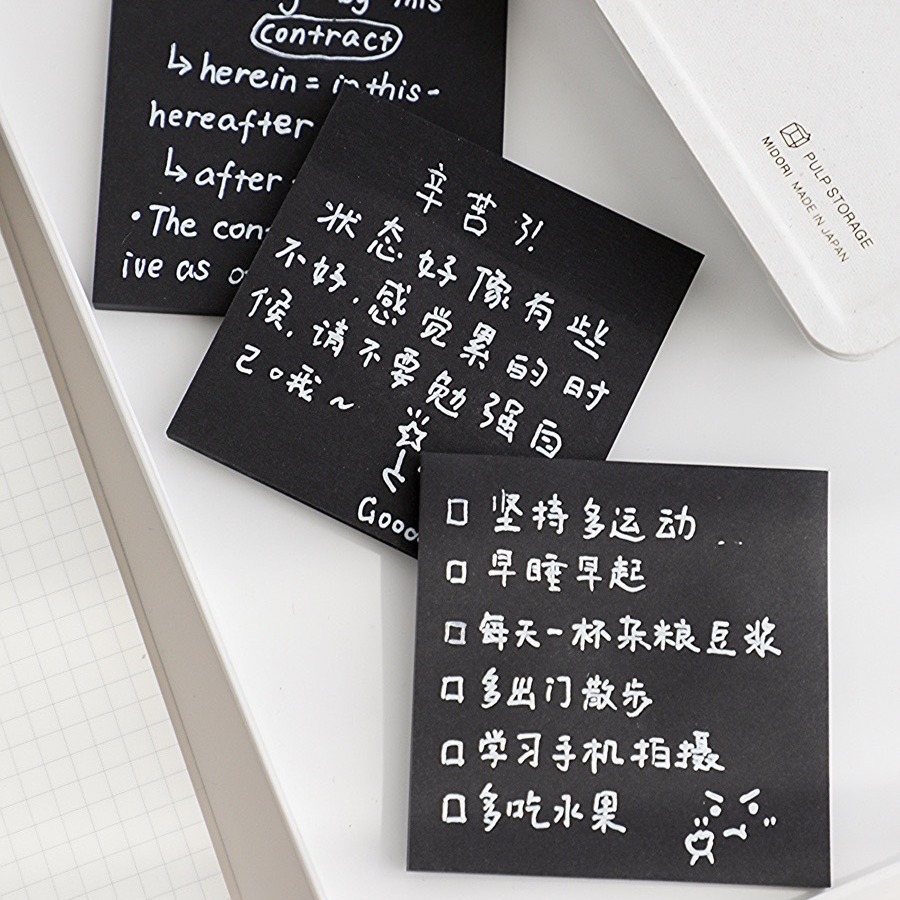 by this
contract
↳ herein = in this-
hereafter
↳ after
• The con
ive as
辛苦了!
状态好像有些
不好,感觉累的时
候,请不要勉强自
己。哦~
Good
□ 坚持多运动
□ 早睡早起
□ 每天一杯杂粮豆浆
□ 多出门散步
□ 学习手机拍摄
□ 多吃水果
PULP STORAGE
MIDORI MADE IN JAPAN